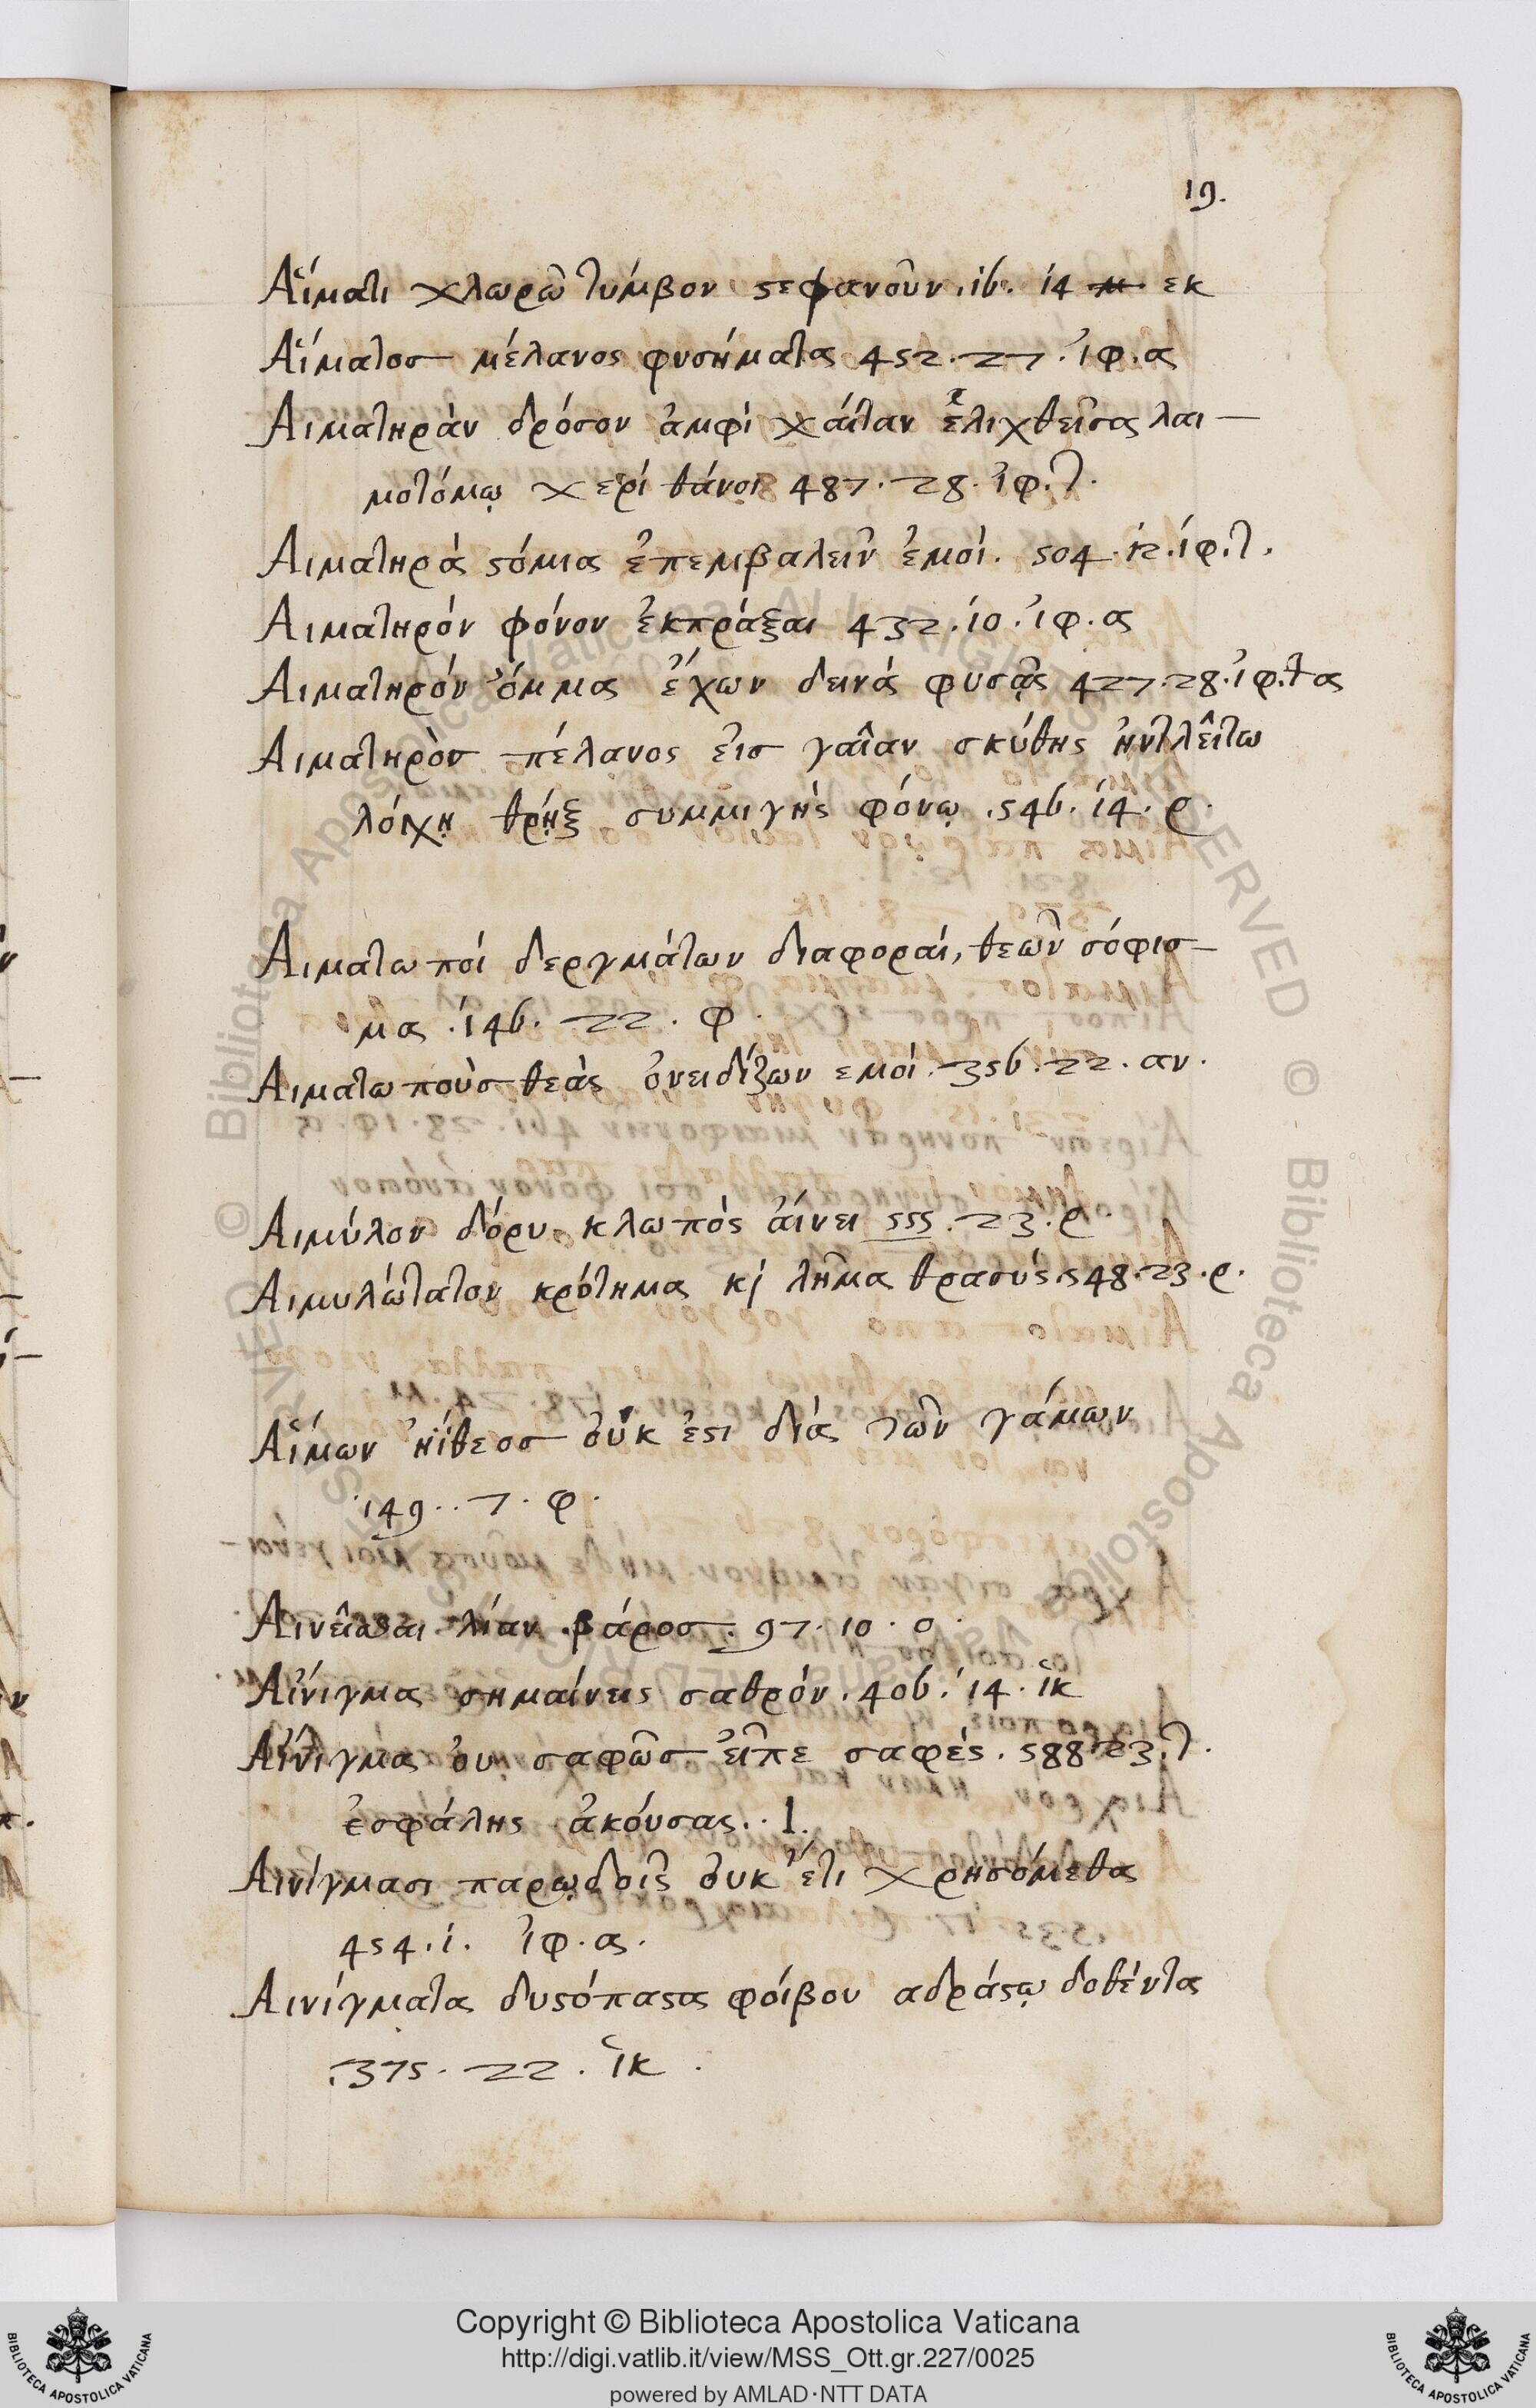 19.
Αἵματι χλωρῶ τύμβον ϛεφανοῦν. 16. 14 εκ
Αἵματοσ μέλανος φυσήματα 452. 27. ἰφ. α
Αιματηρὰν δρόσον ἀμφὶ χαίταν ἑλιχθεῖσα λαι-
μοτόμῳ χερὶ θάνοι 487. 28. ἰφ. τ.
Αιματηρὰ ϛόμια ἐπεμβαλεῖν ἐμοί. 504. 12. ἰφ. τ.
Αιματηρόν φόνον ἐκπράξαι 432. 10. ἰφ. α
Αιματηρόν ὄμμα ἔχων δεινά φυσᾷς 427. 28. ἰφ. τα
Αιματηρὸσ πέλανος εἰσ γαῖαν σκύθης ἠντλεῖτω
λόγχῃ θρῄξ συμμιγὴς φόνῳ. 546. 14. ρ.
Αιματωποί δεργμάτων διαφοραί, θεῶν σόφισ-
μα. 146. 22. φ.
Αιματωποὺσ θεὰς ὀνειδίζων εμοί. 356. 22. αν.
Αιμύλον δόρυ κλωπὸς αἰνει 555. 23. ρ.
Αιμυλώτατον κρότημα κὶ λῆμα θρασύς. 548. 23. ρ.
Αἵμων ἠίθεοσ οὔκ ἐϛι διά τῶν γάμων
149. 7. φ.
Αινεῖσθαι λίαν βάροσ. 97. 10. ο.
Αἴνιγμα σημαίνεις σαθρόν. 406. 14. ἱκ
Αἴνιγμα ου σαφῶσ εἶπε σαφές. 588. 23. τ.
ἐσφάλης ἀκούσας.. 1.
Αινίγμασι παρῳδοῖς ὀυκ ἔτι χρησόμεθα
454. 1. ἰφ. α.
Αινίγματα δυϛόπαϛα φοίβου αδράϛῳ δοθέντα
375. 22. ἱκ.
Copyright © Biblioteca Apostolica Vaticana
http://digi.vatlib.it/view/MSS_Ott.gr.227/0025
powered by AMLAD·NTT DATA
BIBLIOTECA APOSTOLICA VATICANA
BIBLIOTECA APOSTOLICA VATICANA